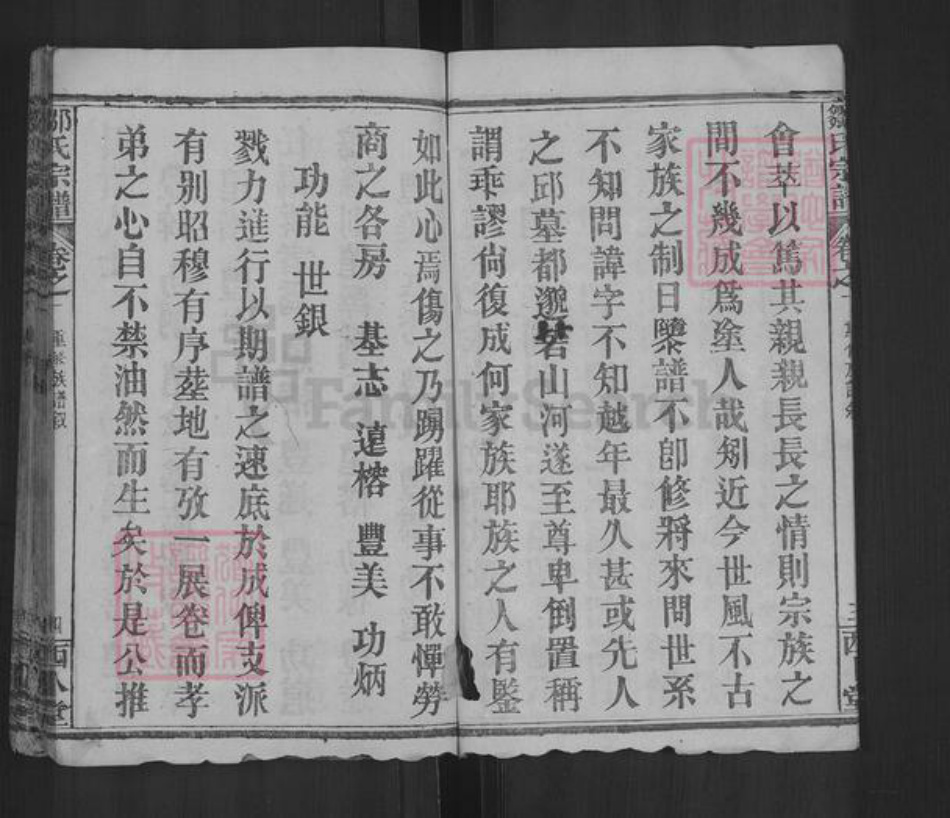 會萃以篤其親親長長之情則宗族之
間不幾成爲塗人哉矧近今世風不古
家族之制日隳譜不卽修將來問世系
不知問諱字不知越年最久甚或先人
之邱墓都邈若山河遂至尊卑倒置稱
謂乖謬尙復成何家族耶族之人有鑒
如此心焉傷之乃踴躍從事不敢憚勞
商之各房 基志 遠榕 豐美 功炳
功能 世銀
戮力進行以期譜之速底於成俾支派
有别昭穆有序塟地有攷一展卷而孝
弟之心自不禁油然而生矣於是公推
鄒氏宗譜 卷之一 四
FamilySearch